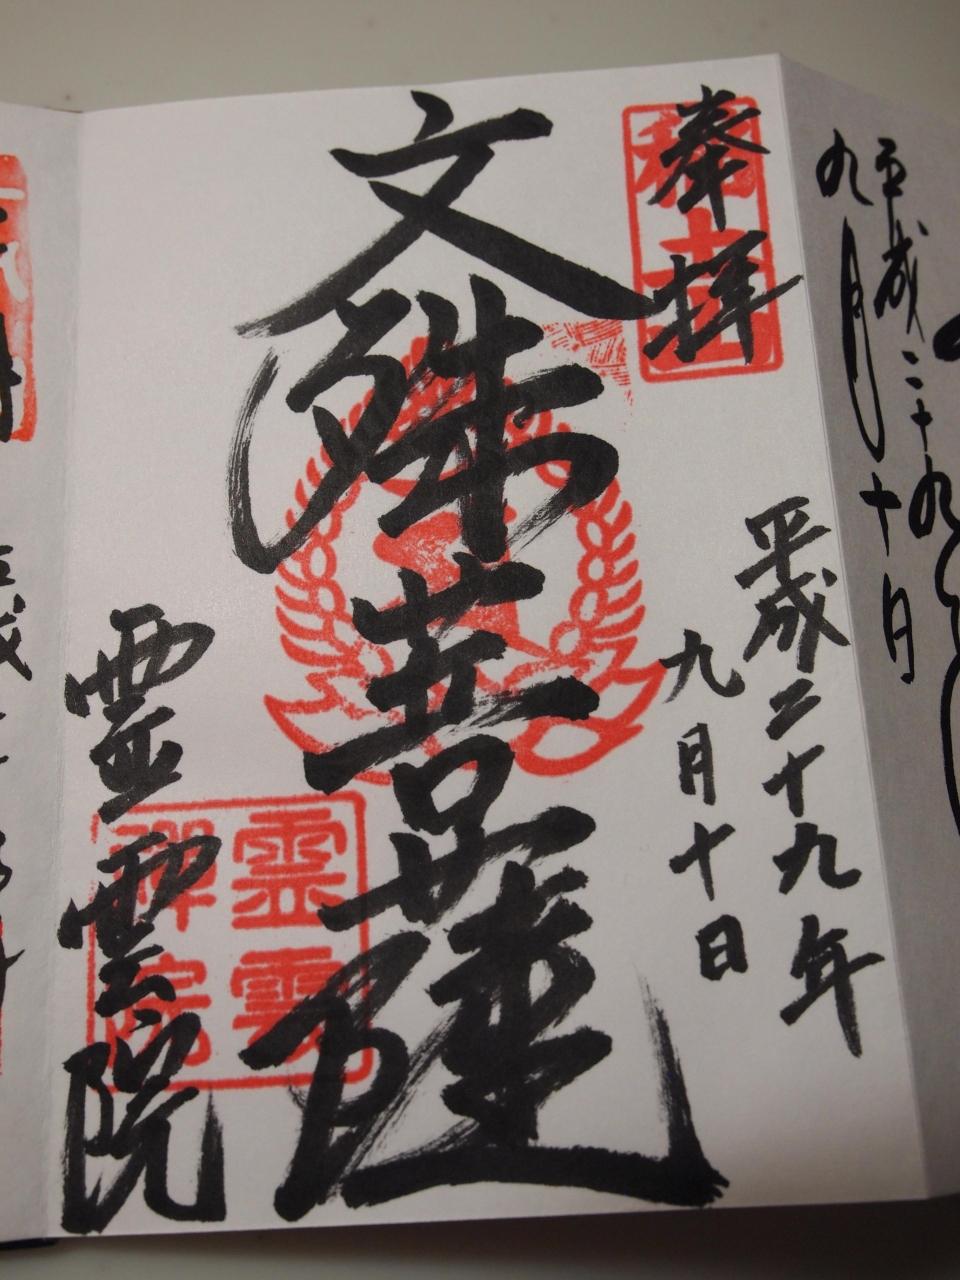 平成二十九
九月十日
奉拝
平成二十九年
九月十日
文殊菩薩
霊雲院
霊雲
禅院
平成